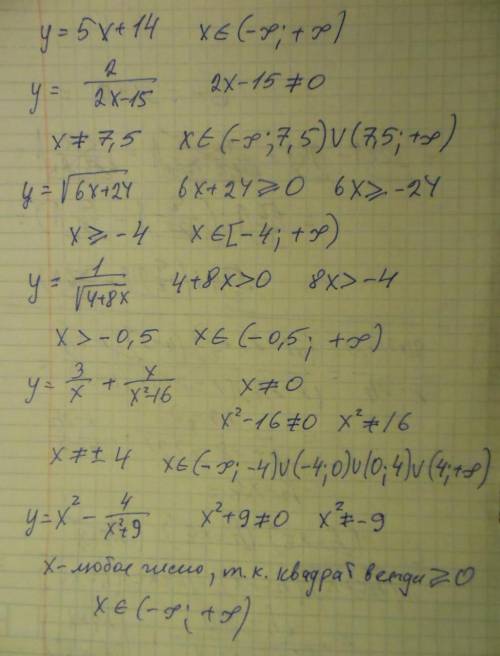 y = 5x+14 x∈(-∞; +∞)
y = 2/(2x-15) 2x-15 ≠ 0
x ≠ 7,5 x∈(-∞; 7,5)∪(7,5; +∞)
y = √(6x+24) 6x+24 ≥ 0 6x ≥ -24
x ≥ -4 x∈[-4; +∞)
y = 1/√(4+8x) 4+8x>0 8x>-4
x > -0,5 x∈(-0,5; +∞)
y = 3/x + x/(x²-16) x ≠ 0
x²-16 ≠ 0 x² ≠ 16
x ≠ ± 4 x∈(-∞; -4)∪(-4; 0)∪(0; 4)∪(4; +∞)
y = x² - 4/(x²+9) x²+9 ≠ 0 x² ≠ -9
x-любое число, т.к. квадрат всегда ≥ 0
x∈(-∞; +∞)